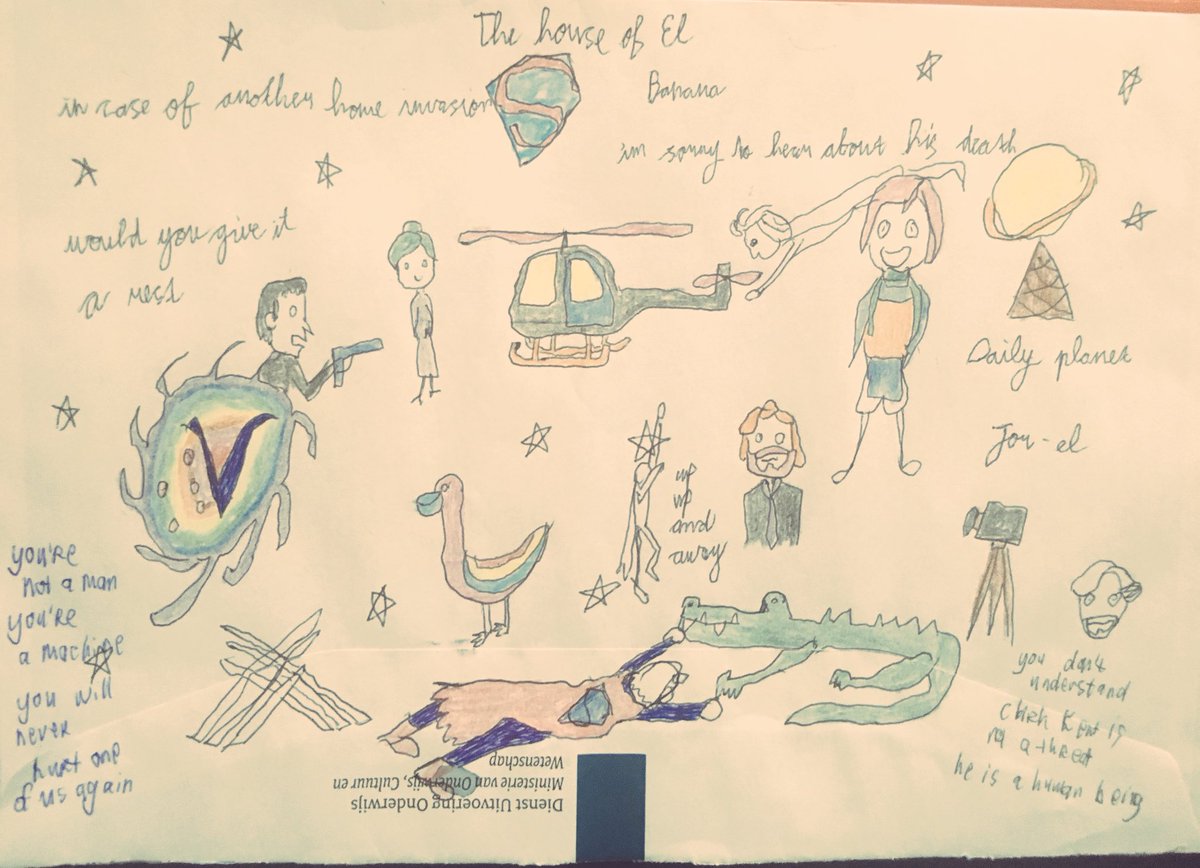 The house of El
in case of another home invasion
S
Banana
im sorry to hear about his death
would you give it
a rest
Daily planet
Jor-el
V
up
up
and
away
you're
not a man
you're
a machine
you will
never
hurt one
of us again
you don't
understand
Clark Kent is
a threat
he is a human being
Dienst Uitvoering Onderwijs
Ministerie van Onderwijs, Cultuur en
Wetenschap